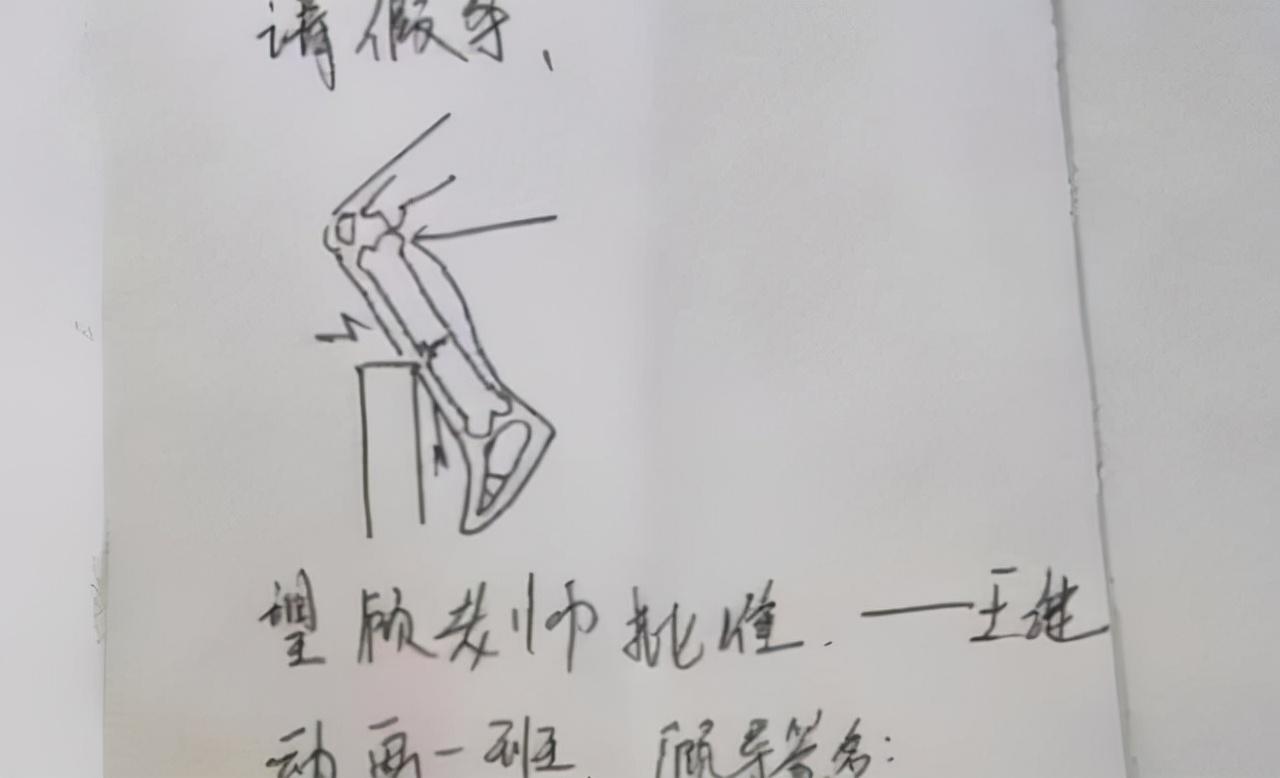 请假条、
望顾老师批准. ——王建
动画一班、顾导签名: